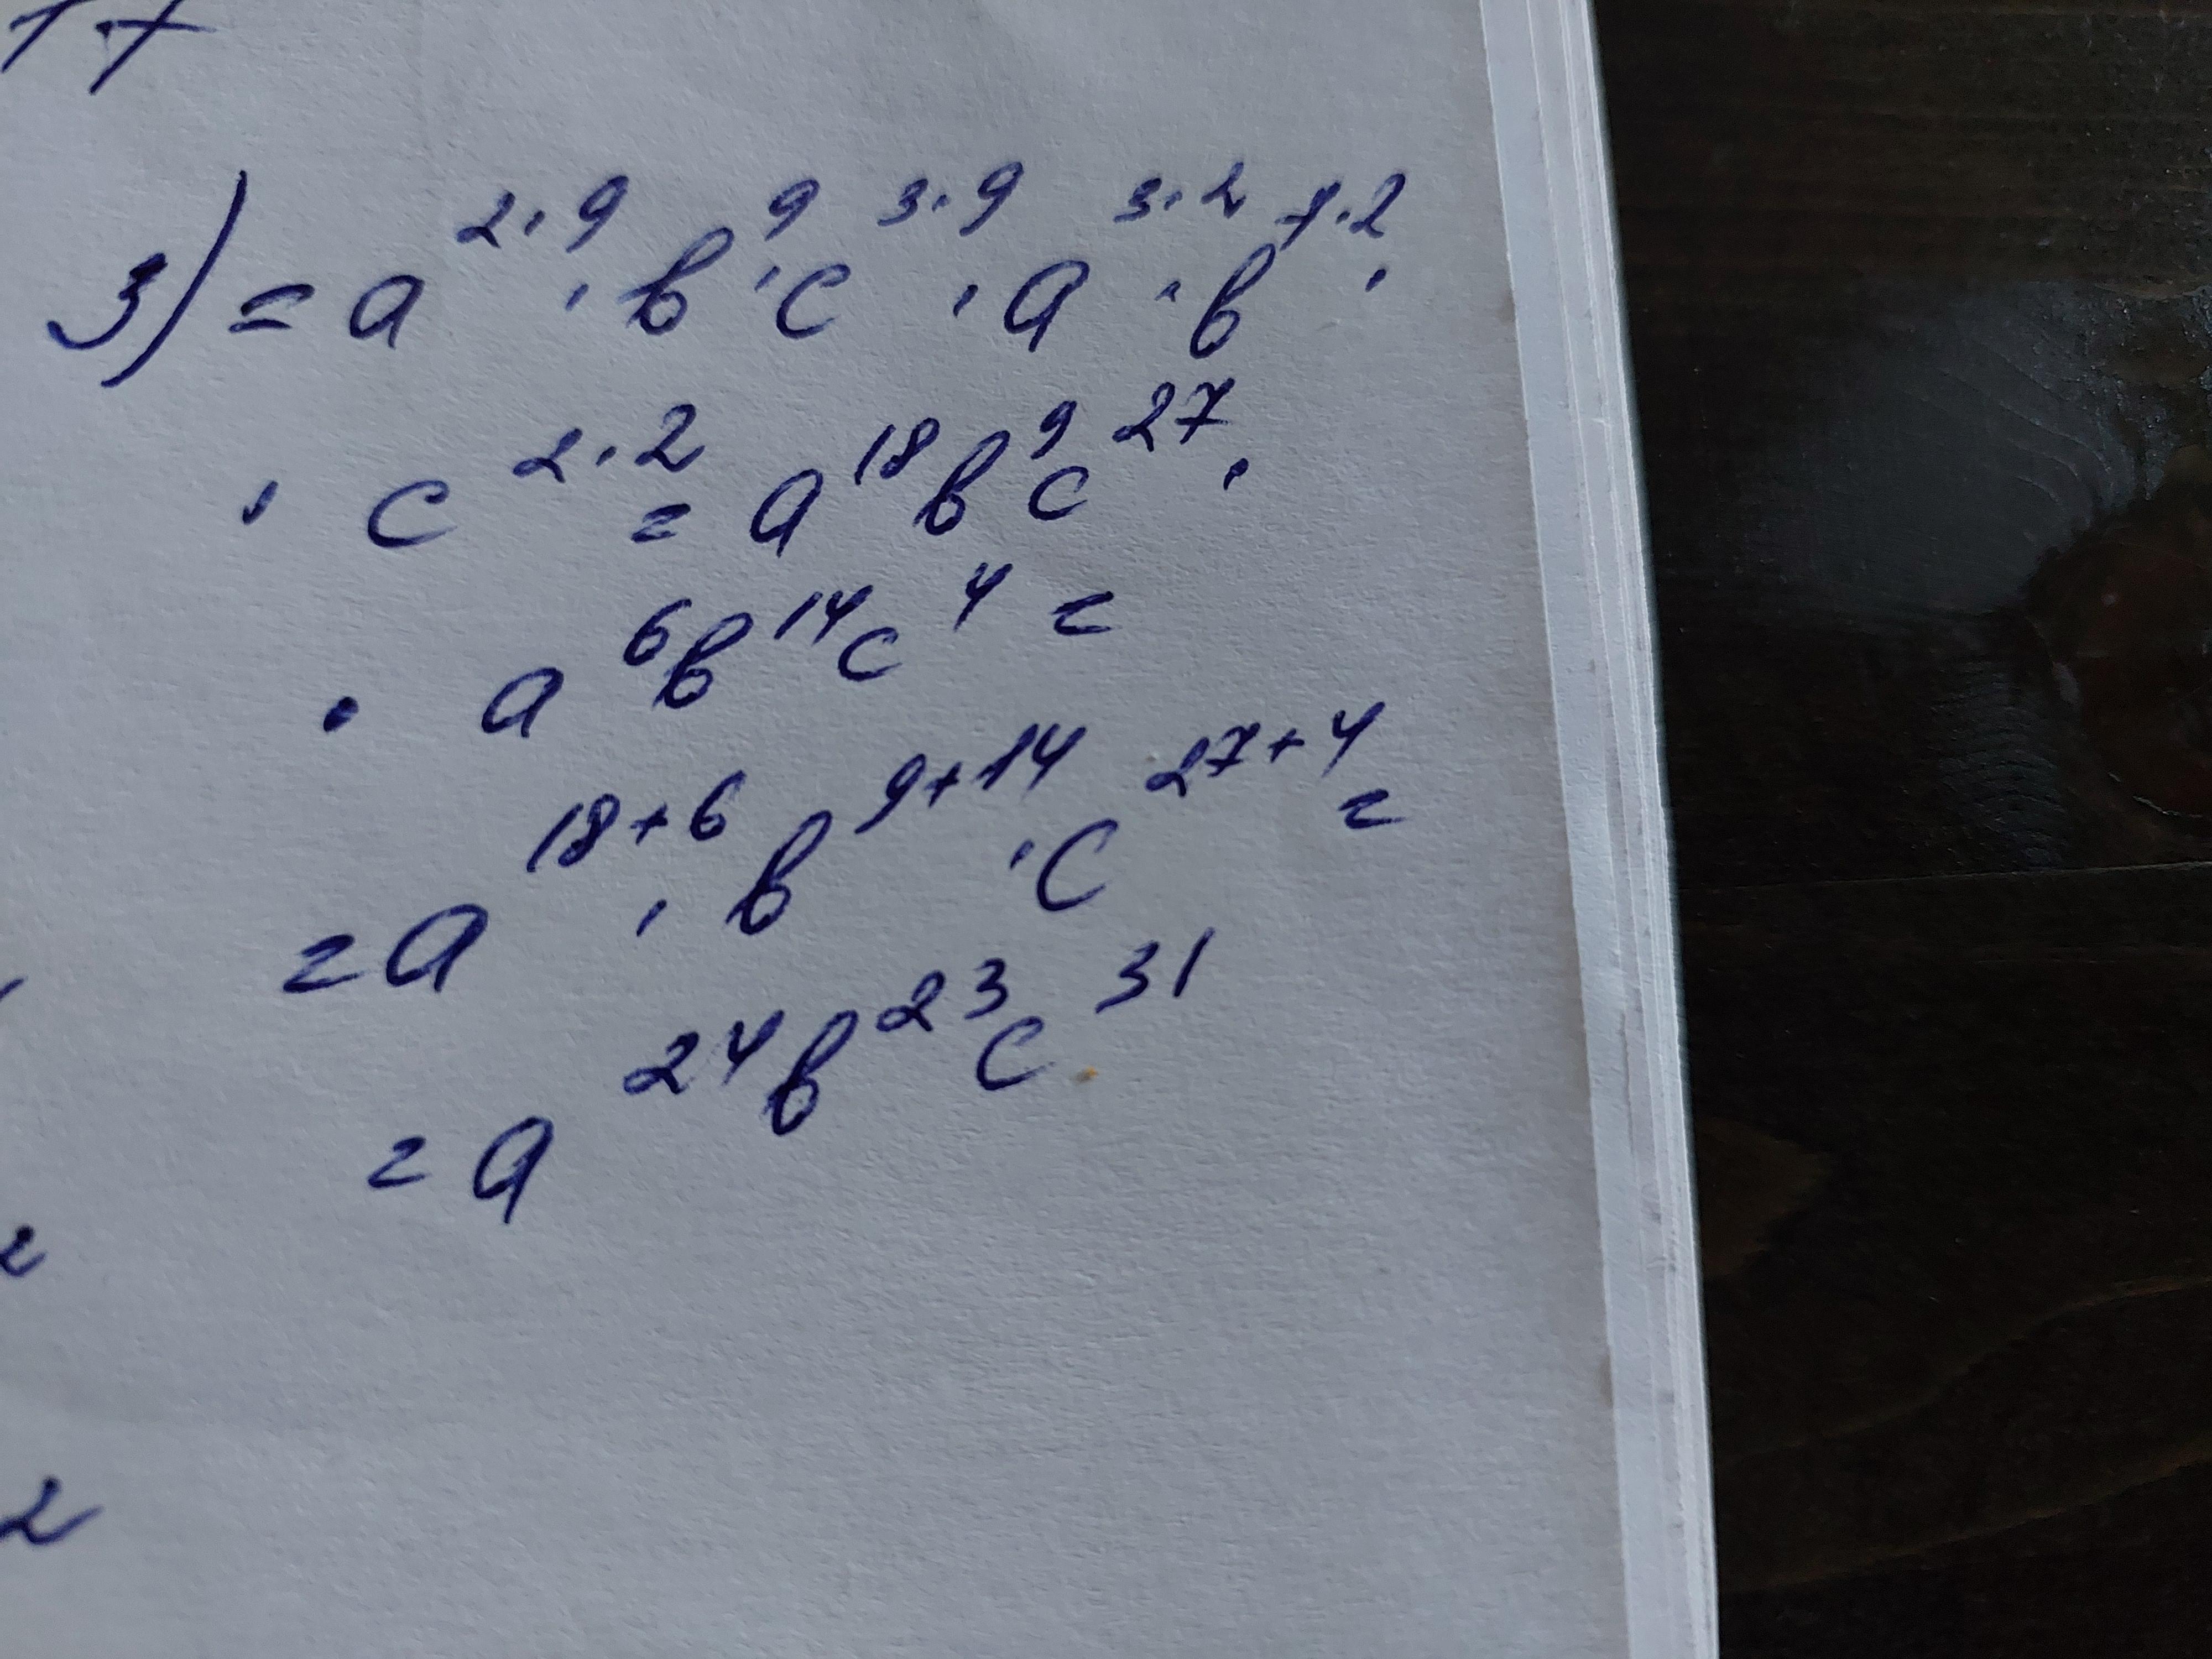 3) = a^{2·9} · b^{9} · c^{3·9} · a^{3·2} · b^{7·2} ·
· c^{2·2} = a^{18} b^{9} c^{27} ·
· a^{6} b^{14} c^{4} =
= a^{18+6} · b^{9+14} · c^{27+4} =
= a^{24} b^{23} c^{31}